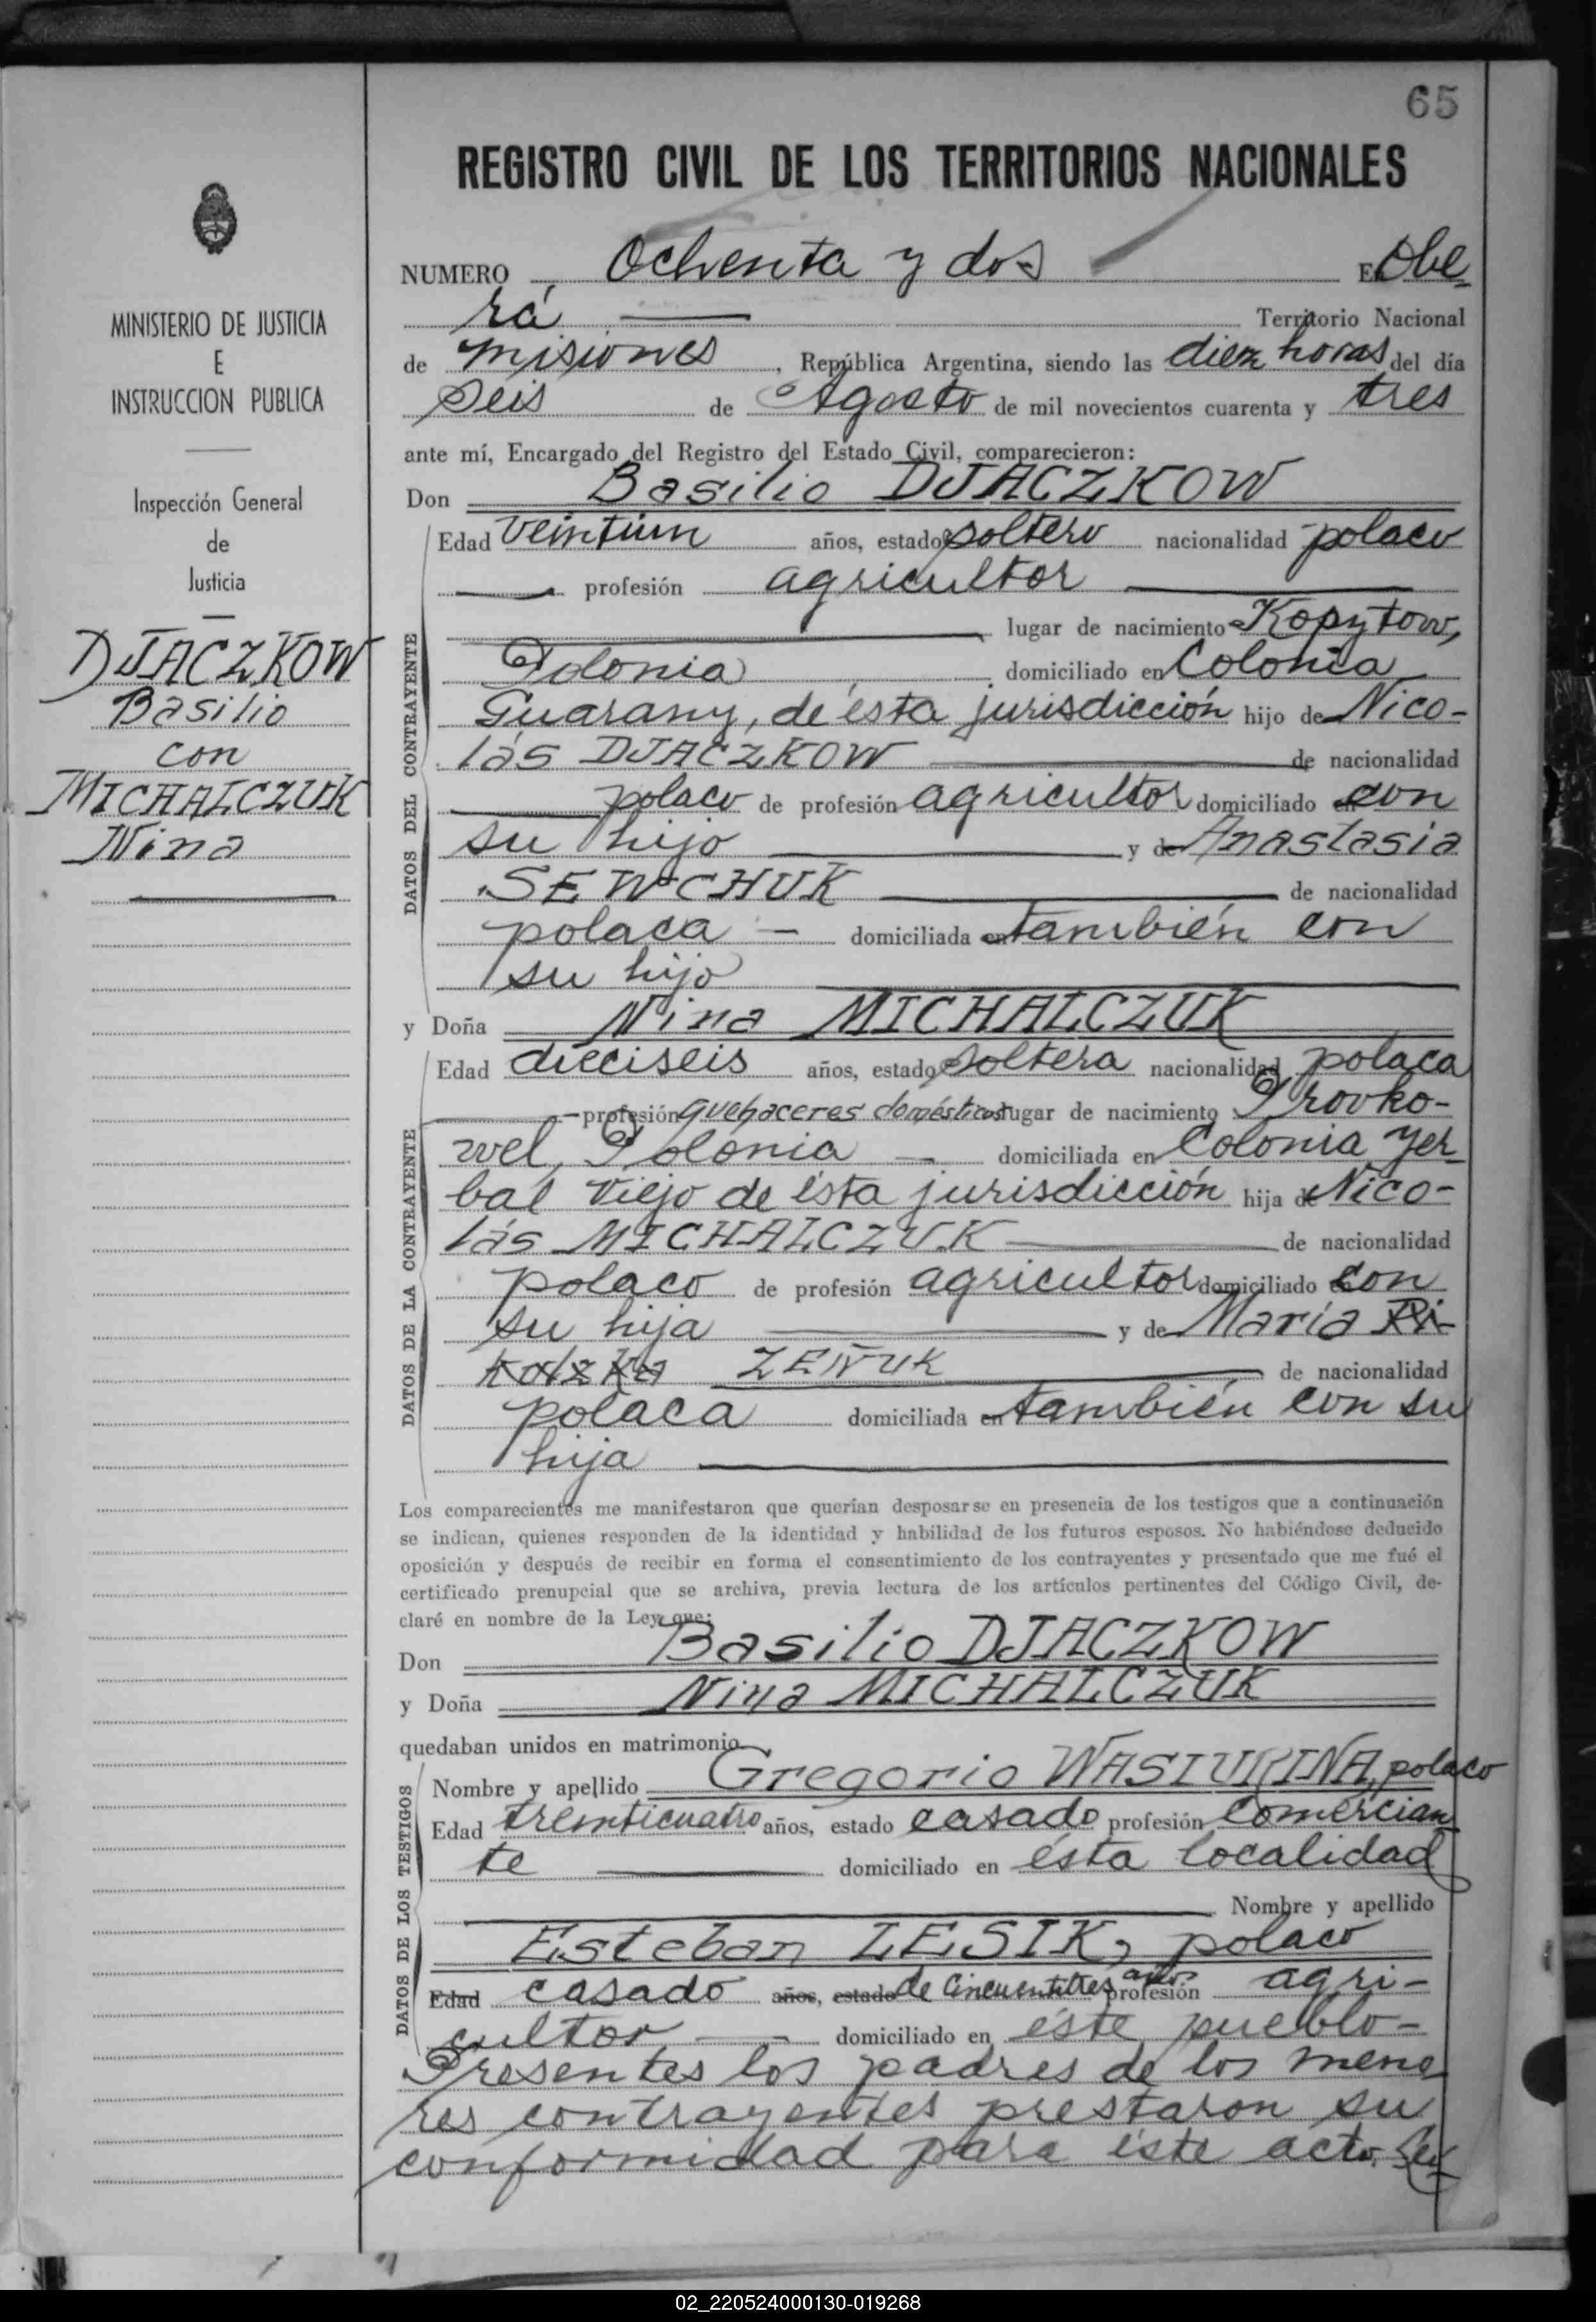 65
REGISTRO CIVIL DE LOS TERRITORIOS NACIONALES
MINISTERIO DE JUSTICIA
E
INSTRUCCION PUBLICA
Inspección General
de
Justicia
DJACZKOW
Basilio
con
MICHALCZUK
Nina
NUMERO Ochenta y dos En Obe
rá Territorio Nacional
de Misiones, República Argentina, siendo las diez horas del día
seis de Agosto de mil novecientos cuarenta y tres
ante mí, Encargado del Registro del Estado Civil, comparecieron:
Don Basilio DJACZKOW
DATOS DEL CONTRAYENTE
Edad veintiun años, estado soltero nacionalidad polaco
profesión agricultor
lugar de nacimiento Kopytow,
Polonia domiciliado en Colonia
Guarany, de ésta jurisdicción hijo de Nico-
lás DJACZKOW de nacionalidad
polaco de profesión agricultor domiciliado con
su hijo y de Anastasia
SEWCHUK de nacionalidad
polaca - domiciliada en también con
su hijo
y Doña Nina MICHALCZUK
DATOS DE LA CONTRAYENTE
Edad dieciseis años, estado soltera nacionalidad polaca
profesión quehaceres domésticos lugar de nacimiento Provko-
wel, Polonia domiciliada en Colonia Yer
bal Viejo de ésta jurisdicción hija de Nico-
lás MICHALCZUK de nacionalidad
polaco de profesión agricultor domiciliado con
su hija y de María
ZEÑUK de nacionalidad
polaca domiciliada en también con su
hija
Los comparecientes me manifestaron que querían desposarse en presencia de los testigos que a continuación
se indican, quienes responden de la identidad y habilidad de los futuros esposos. No habiéndose deducido
oposición y después de recibir en forma el consentimiento de los contrayentes y presentado que me fué el
certificado prenupcial que se archiva, previa lectura de los artículos pertinentes del Código Civil, de-
claré en nombre de la Ley que:
Don Basilio DJACZKOW
y Doña Nina MICHALCZUK
quedaban unidos en matrimonio
DATOS DE LOS TESTIGOS
Nombre y apellido Gregorio WASIURINA, polaco
Edad treinticuatro años, estado casado profesión comercian
te domiciliado en ésta localidad
Nombre y apellido
Esteban LESIK, polaco
Edad casado años, estado de cincuentitres años profesión agri-
cultor domiciliado en éste pueblo-
Presentes los padres de los meno
res contrayentes prestaron su
conformidad para éste acto. Leí
02_220524000130-019268